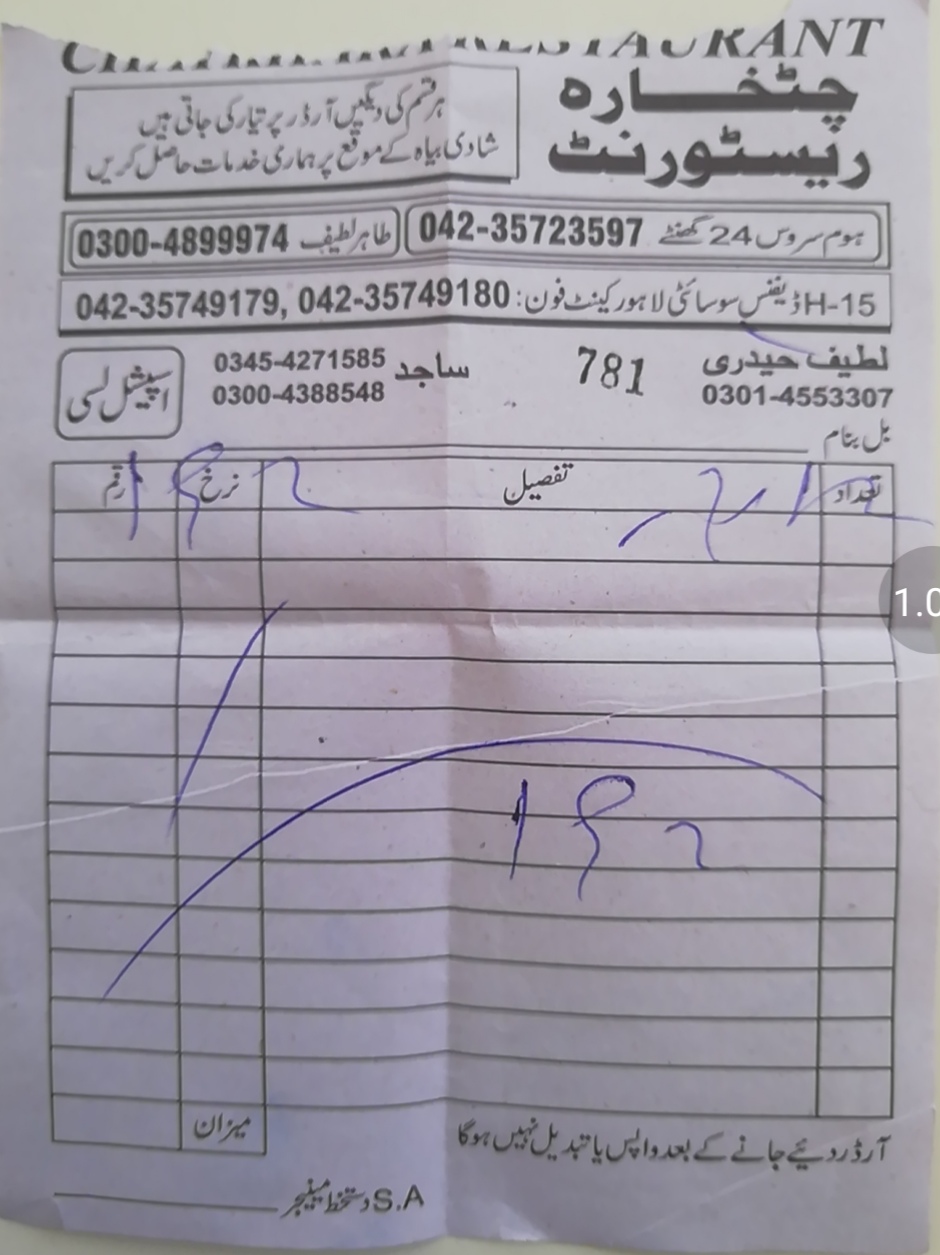 RESTAURANT
چٹخارہ
ریسٹورنٹ
ہر قسم کی دیگیں آرڈر پر تیار کی جاتی ہیں
شادی بیاہ کے موقع پر ہماری خدمات حاصل کریں
ہوم سروس 24 گھنٹے 042-35723597
طاہر لطیف 0300-4899974
H-15 ڈیفنس سوسائٹی لاہور کینٹ فون: 042-35749180 ,042-35749179
لطیف حیدری
0301-4553307
781
ساجد 0345-4271585
0300-4388548
اسپیشل لسی
بل بنام
تعداد تفصیل نرخ رقم
میزان
آرڈر دیئے جانے کے بعد واپس یا تبدیل نہیں ہوگا
S.A دستخط مینیجر
1.0